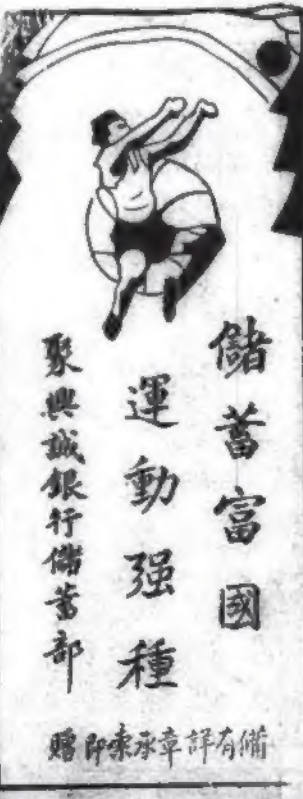 儲蓄富國
運動强種
聚興誠銀行儲蓄部
備有詳章承索即贈